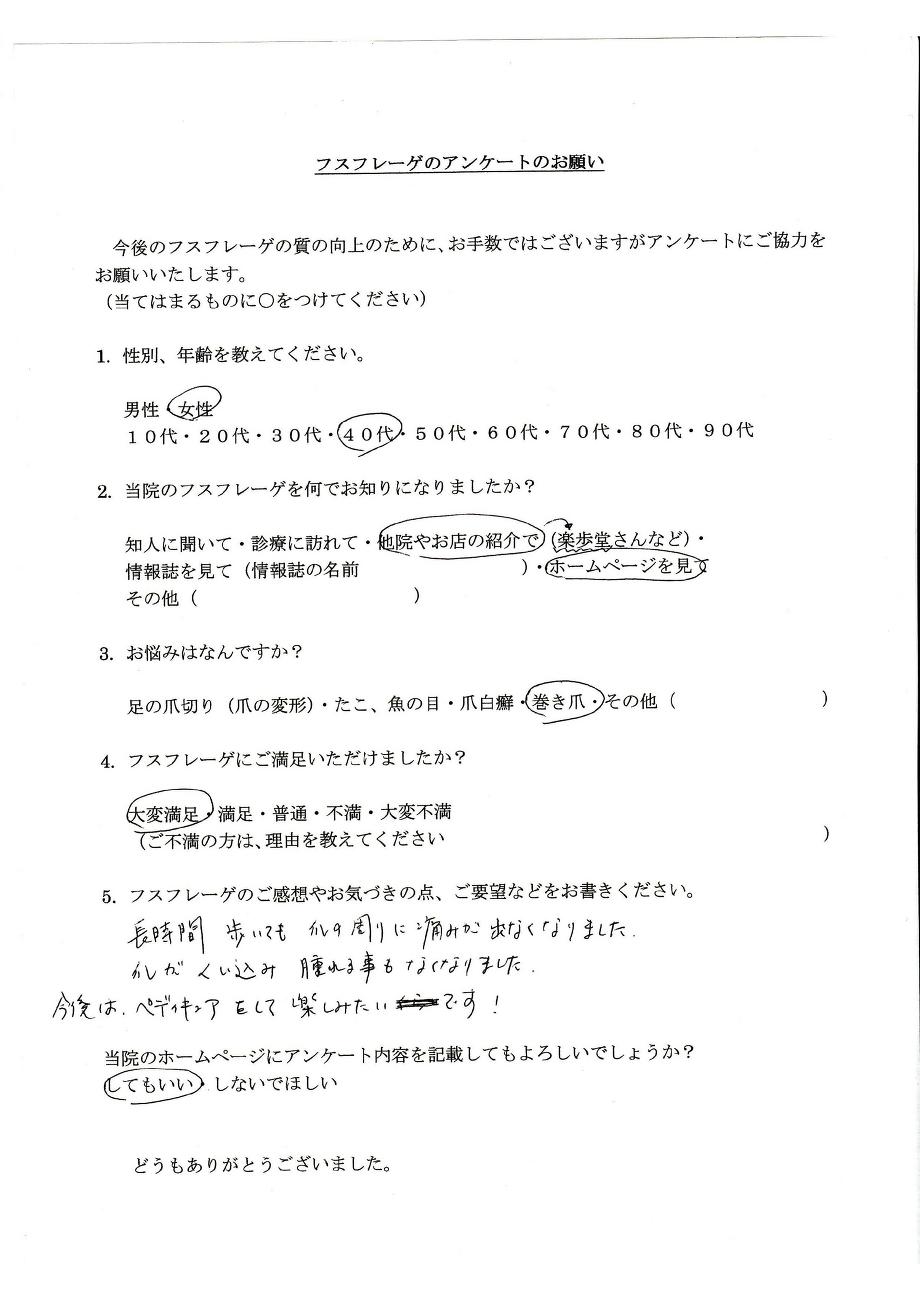 フスフレーゲのアンケートのお願い
今後のフスフレーゲの質の向上のために、お手数ではございますがアンケートにご協力を
お願いいたします。
（当てはまるものに〇をつけてください）
1. 性別、年齢を教えてください。
男性・女性
１０代・２０代・３０代・４０代・５０代・６０代・７０代・８０代・９０代
2. 当院のフスフレーゲを何でお知りになりましたか？
知人に聞いて・診療に訪れて・他院やお店の紹介で（楽歩堂さんなど）・
情報誌を見て（情報誌の名前　　　　　　　　　）・ホームページを見て
その他（　　　　　　　　　　　　）
3. お悩みはなんですか？
足の爪切り（爪の変形）・たこ、魚の目・爪白癬・巻き爪・その他（　　　　　　　　）
4. フスフレーゲにご満足いただけましたか？
大変満足・満足・普通・不満・大変不満
（ご不満の方は、理由を教えてください　　　　　　　　　　　　　　　　　　　　　）
5. フスフレーゲのご感想やお気づきの点、ご要望などをお書きください。
長時間 歩いても 爪の周りに痛みが出なくなりました.
爪が くい込み 腫れる事もなくなりました.
今後は、ペディキュアをして楽しみたいです！
当院のホームページにアンケート内容を記載してもよろしいでしょうか？
してもいい・しないでほしい
どうもありがとうございました。